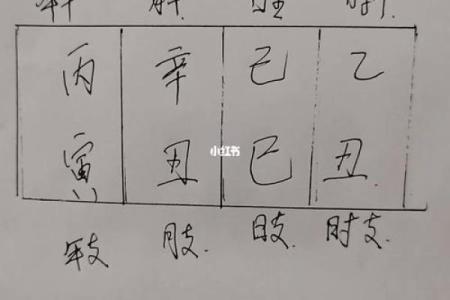 丙 辛 己 乙
寅 丑 巳 丑
小红书
年支 月支. 日支. 时支.